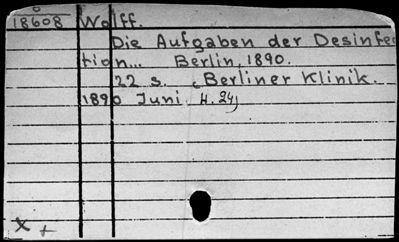 18608 Wolff.
Die Aufgaben der Desinfec
tion... Berlin, 1890.
22 s. (Berliner Klinik.
1890 Juni. H. 24)
x +